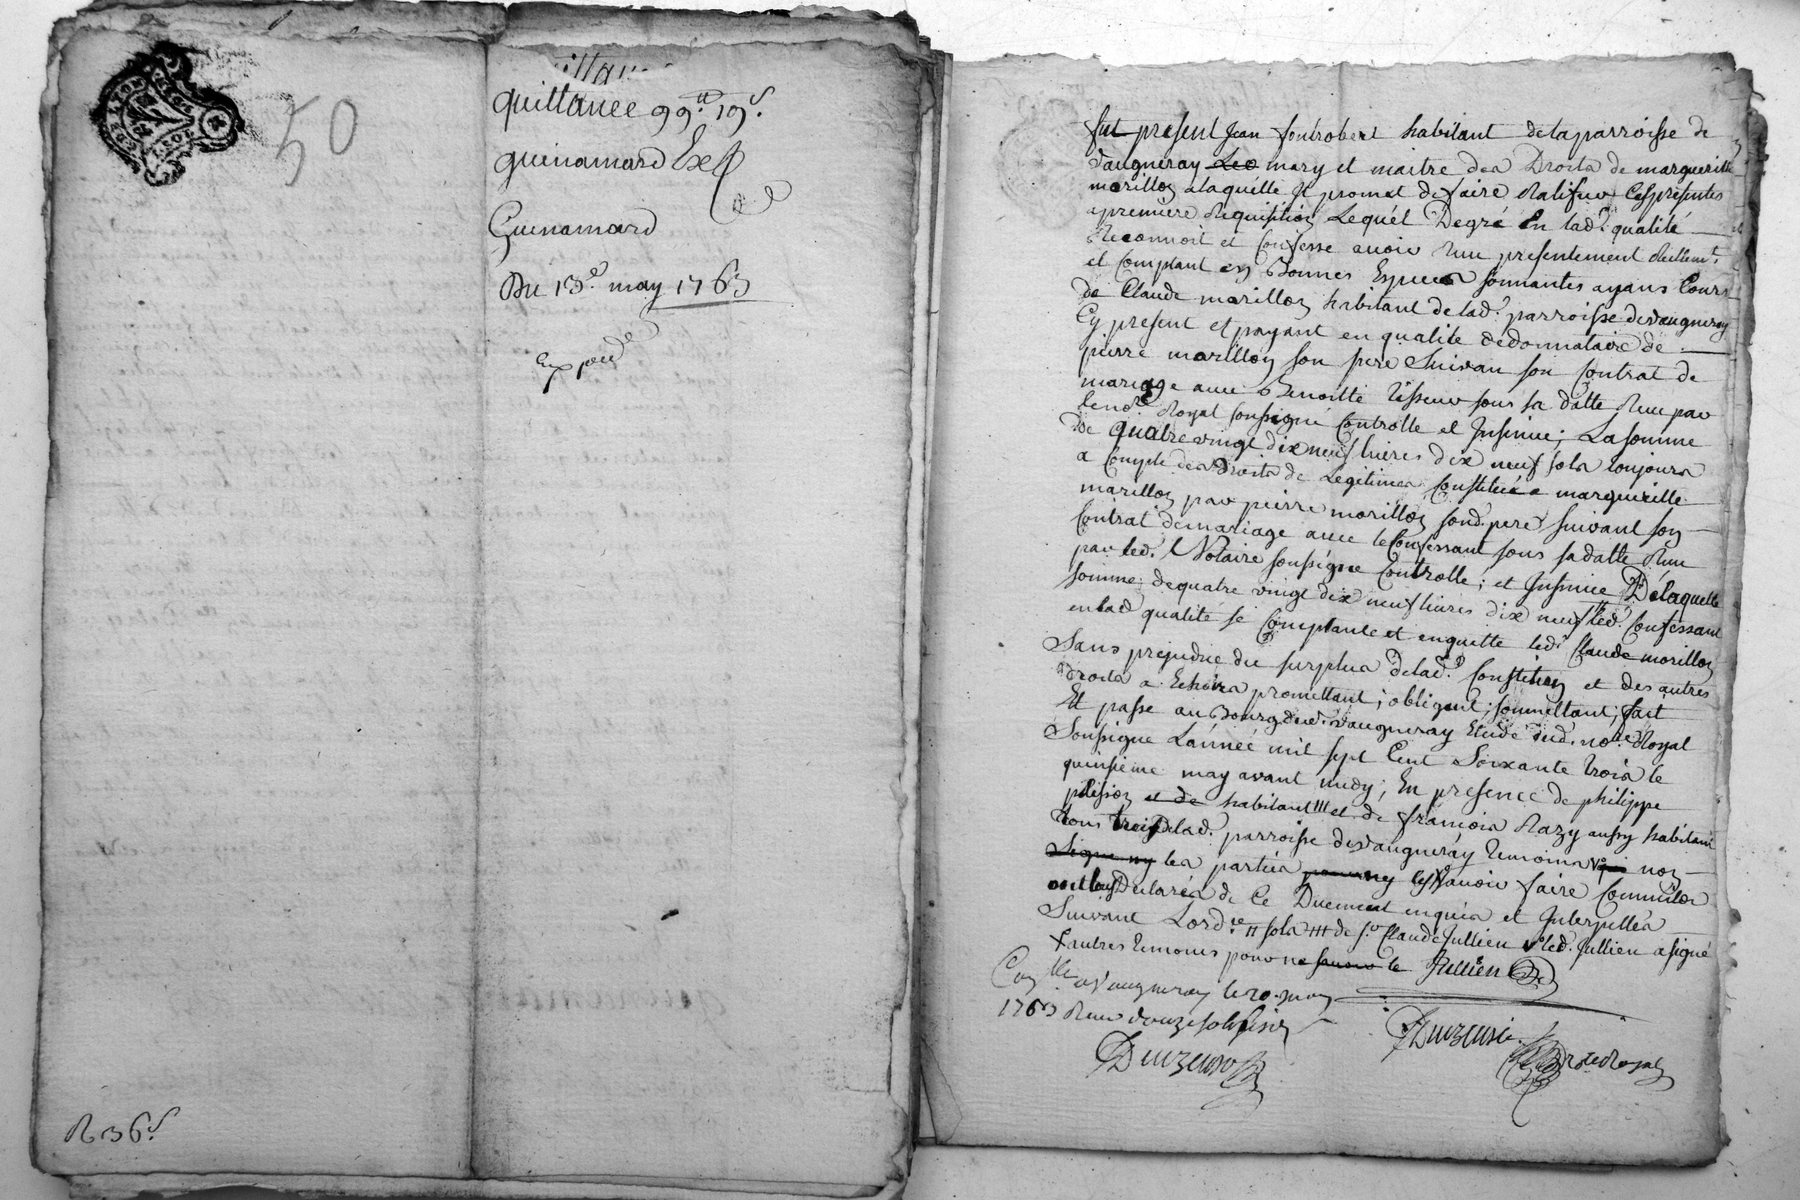 50
quittance 99₶ 19s.
guinamard Exp
Guinamard
Du 15e may 1763
Expedé
R 36s
fut present Jean fontrobert habitant de la parroisse de
Vaugneray mary et maitre des Droits de margueritte
morillon a laquelle Il promet de faire Ratifier Ces presentes
a premiere Requisition Lequel De gré En lad. qualité
Reconnoit et Confesse avoir Receu presentement Reellemt.
et Comptant en Bonnes Especes sonnantes ayans Cours
de Claude morillon habitant de lad. parroisse de vaugneray
Cy present et payant en qualité de donnataire de
pierre morillon son pere Suivan son Contrat de
mariage avec Benoitte Tisseur sous sa datte Receu par
le nore. Royal soussigné Controllé et Insinué; La somme
De quatre vingt dix neuf livres dix neuf sols toujours
a Compte des Droits de Legitimes Constitués a margueritte
morillon par pierre morillon sond. pere suivant son
Contrat de mariage avec le Confessant sous sa datte Receu
par led. Notaire soussigné Controllé; et Insinué De laquelle
somme de quatre vingt dix neuf livres dix neuf s led. Confessant
en lad qualité se Comptante et en quitte led. Claude morillon
Sans prejudice du surplus de lad. Constitution et des autres
droits a Echoirs promettant; obligeant; soumettant; fait
Et passé au Bourg dud. vaugneray Etude dud. nore Royal
Soussigné L'année mil sept Cent Soixante trois le
quinsieme may avant midy; En presence de philippe
et de habitant et de françois Razy aussy habitant
tous trois de lad. parroisse de vaugneray temoins non
Signe ny les parties pour ny les avoir faire Comme
ont tous Declarés de Ce Duement enquis et Interpellés
Suivant L'ordce # sols ### de sr. Claude Jullien led. Jullien a signé
autres temoins pour ne savoir le Jullien
Conllé a Vaugneray le 20 may
1763 Receu douze sols six d
Duizerioo